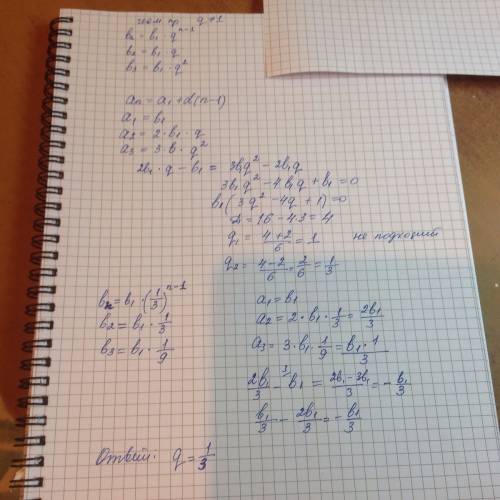 геом пр q ≠ 1
bn = b1 · q^(n-1)
b2 = b1 · q
b3 = b1 · q²
an = a1 + d(n-1)
a1 = b1
a2 = 2 · b1 · q
a3 = 3 · b1 · q²
2b1 · q - b1 = 3b1q² - 2b1q
3b1q² - 4b1q + b1 = 0
b1(3q² - 4q + 1) = 0
D = 16 - 4·3 = 4
q1 = (4+2)/6 = 1 не подходит
q2 = (4-2)/6 = 2/6 = 1/3
bn = b1 · (1/3)^(n-1)
b2 = b1 · 1/3
b3 = b1 · 1/9
a1 = b1
a2 = 2 · b1 · 1/3 = 2b1/3
a3 = 3 · b1 · 1/9 = b1 · 1/3
2b1/3 - b1 = (2b1 - 3b1)/3 = - b1/3
b1/3 - 2b1/3 = - b1/3
Ответ: q = 1/3